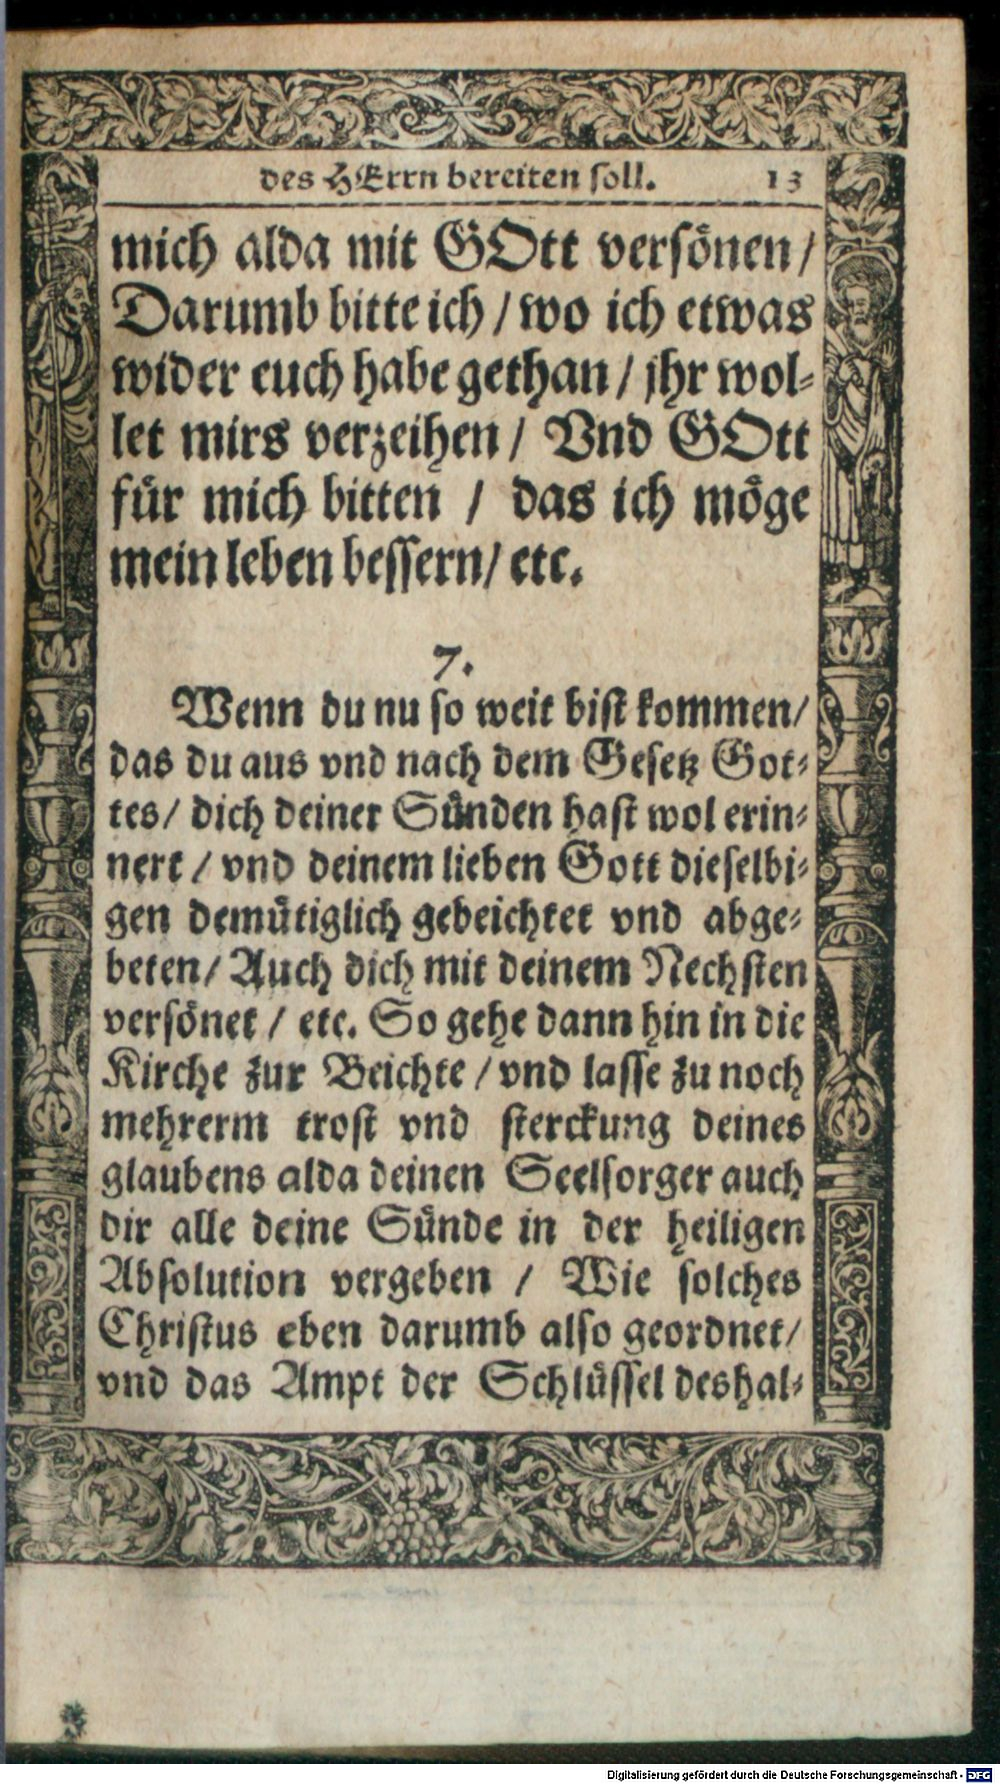 des HErrn bereiten soll. 13
mich alda mit GOtt versönen /
Darumb bitte ich / wo ich etwas
wider euch habe gethan / jhr wol-
let mirs verzeihen / Vnd GOtt
für mich bitten / das ich möge
mein leben bessern / etc.
7.
Wenn du nu so weit bist kommen /
das du aus vnd nach dem Gesetz Got-
tes / dich deiner Sünden hast wol erin-
nert / vnd deinem lieben Gott dieselbi-
gen demütiglich gebeichtet vnd abge-
beten / Auch dich mit deinem Nechsten
versönet / etc. So gehe dann hin in die
Kirche zur Beichte / vnd lasse zu noch
mehrerm trost vnd sterckung deines
glaubens alda deinen Seelsorger auch
dir alle deine Sünde in der heiligen
Absolution vergeben / Wie solches
Christus eben darumb also geordnet /
vnd das Ampt der Schlüssel deshal-
Digitalisierung gefördert durch die Deutsche Forschungsgemeinschaft - DFG